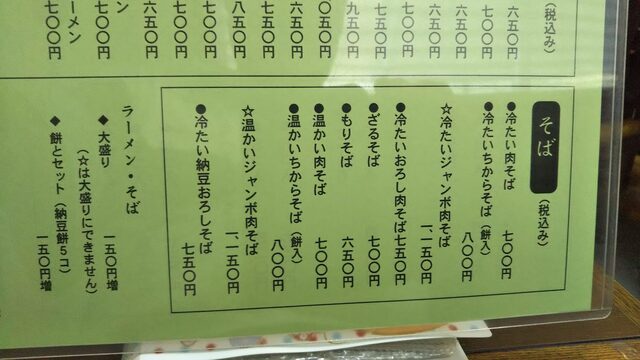 (税込み)
六五〇円
七〇〇円
七〇〇円
六五〇円
七五〇円
九五〇円
七〇〇円
八五〇円
六五〇円
七〇〇円
ーメン
七〇〇円
そば
(税込み)
●冷たい肉そば 七〇〇円
●冷たいちからそば(餅入) 八〇〇円
☆冷たいジャンボ肉そば 一、一五〇円
●冷たいおろし肉そば 七五〇円
●ざるそば 七〇〇円
●もりそば 六五〇円
●温かい肉そば 七〇〇円
●温かいちからそば(餅入) 八〇〇円
☆温かいジャンボ肉そば 一、一五〇円
●冷たい納豆おろしそば 七五〇円
ラーメン・そば
◆大盛り 一五〇円増
(☆は大盛りにできません)
◆餅とセット(納豆餅5コ) 一五〇円増